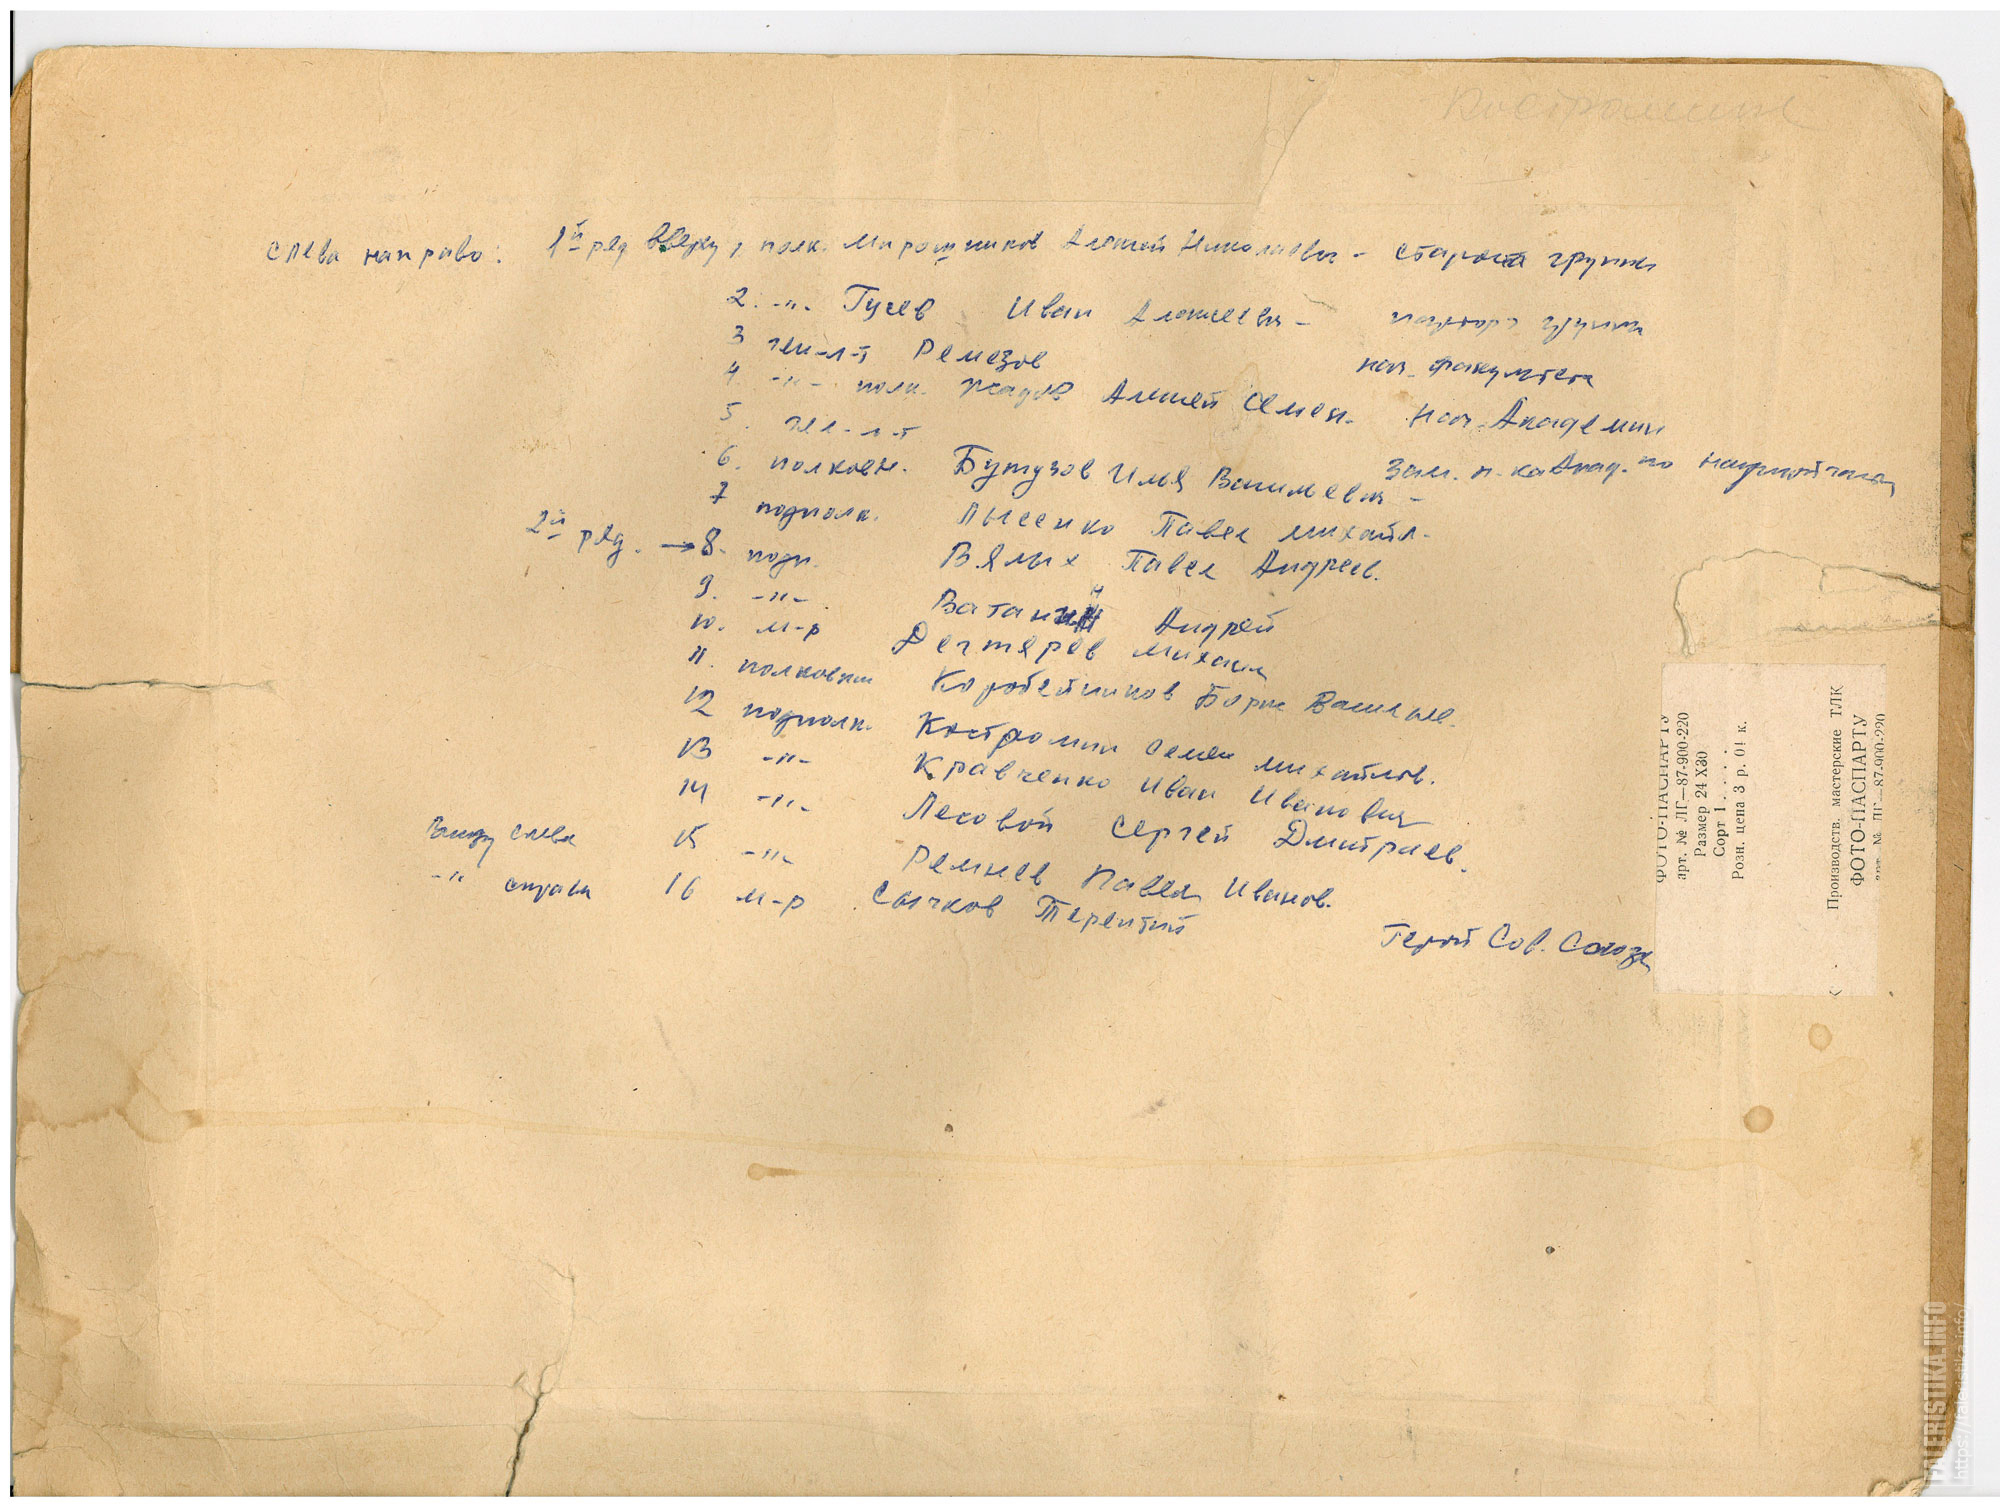 Костромин
Слева направо: 1й ряд вверху, полк. Мирошников Алексей Николаевич - староста группы
2. -"- Гусев Иван Алексеевич - парторг группы
3 ген-л-т Ремезов нач. факультета
4. -"- полк. Жадов Алексей Семен. Нач. Академии
5. ген-л-т Зам. н-ка Акад. по научной части
6. полковн. Бутузов Илья Васильевич -
7 подполк. Лысенко Павел Михайл.
2й ряд. → 8. подп. Вялых Павел Андреев.
9. -"- Андрей
10. м-р Дегтярев Михаил
11. полковник Коробейников Борис Василье.
12 подполк. Костромин Семен Михайлов.
13 -"- Кравченко Иван Иванович
14 -"- Лесовой Сергей Дмитриев.
Внизу слева 15 -"- Ремнев Павел Иванов.
-"- справа 16 м-р Сычков Терентий Герой Сов. Союза
ФОТО-ПАСПАРТУ
арт. № ЛГ—87-900-220
Размер 24 X30
Сорт 1 . . . .
Розн. цена 3 р. 01 к.
Производств. мастерские ТЛК
ФОТО-ПАСПАРТУ
арт. № ЛГ—87-900-220
FALERISTIKA.INFO
https://faleristika.info/